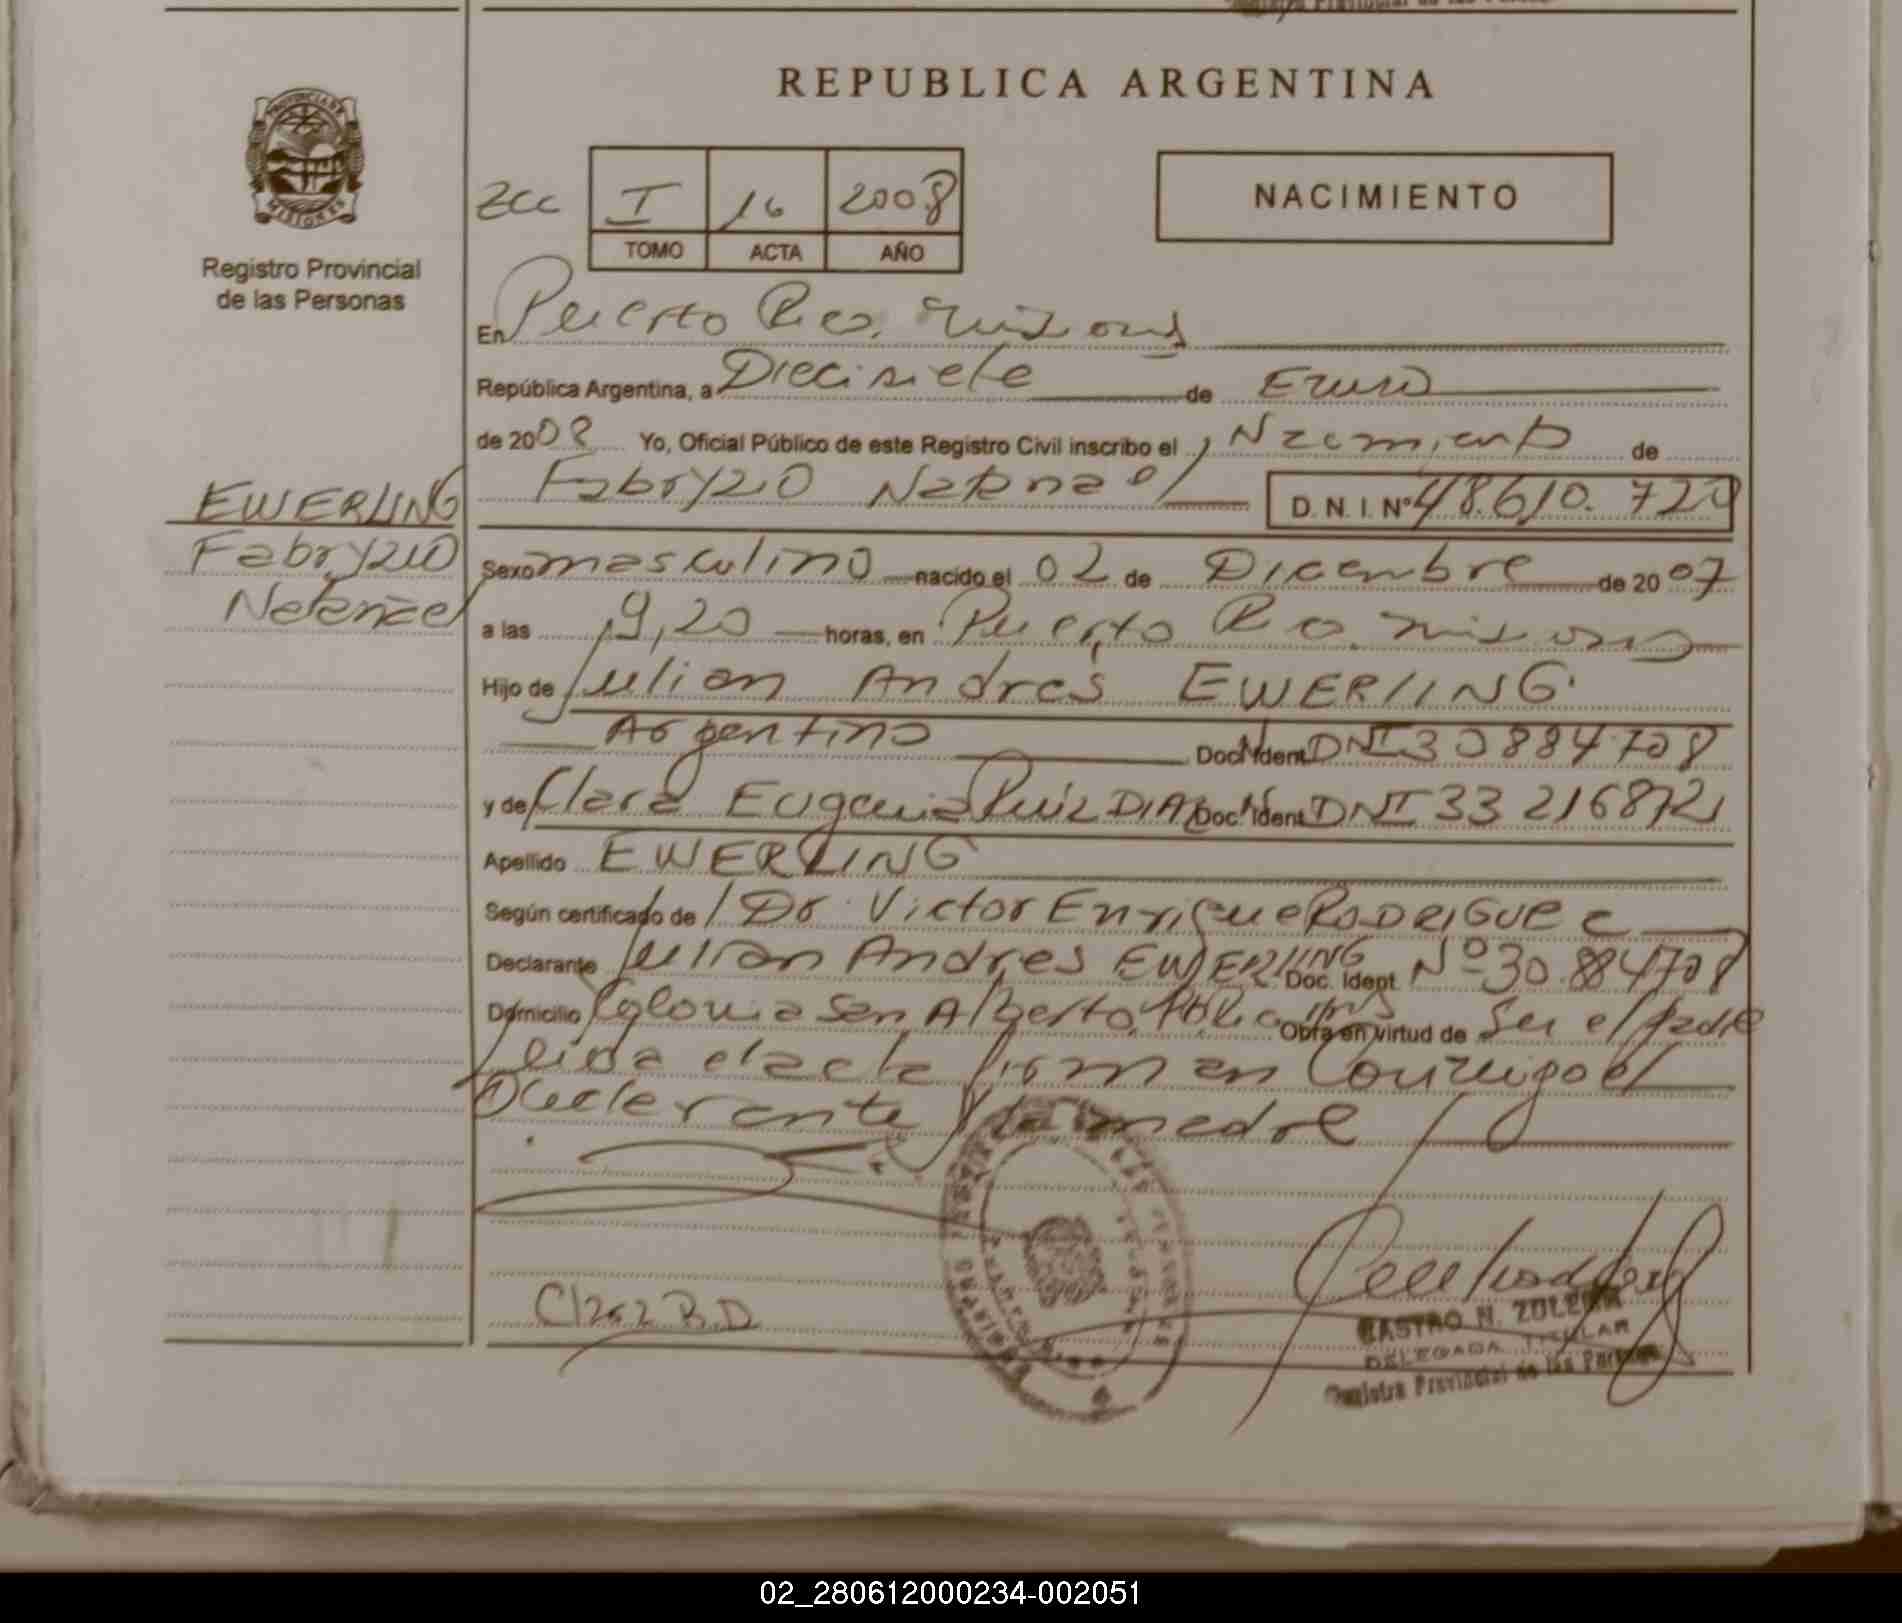 REPUBLICA ARGENTINA
PROVINCIA DE
MISIONES
Registro Provincial
de las Personas
I 16 2008
TOMO ACTA AÑO
NACIMIENTO
En Puerto Rico, Misiones
República Argentina, a Diecisiete de Enero
de 2008 Yo, Oficial Público de este Registro Civil inscribo el Nacimiento de
Fabryzio Natanael D. N. I. Nº 48.610.728
EWERLING
Fabryzio
Natanael
Sexo masculino nacido el 02 de Diciembre de 2007
a las 9,20 horas, en Puerto Rico, Misiones
Hijo de Julian Andrés EWERLING
Argentino Doc. Ident. DNI 30884708
y de Clara Eugenia Ruiz DIAZ Doc. Ident. DNI 33216872
Apellido EWERLING
Según certificado de Dr. Victor Enrique RODRIGUEZ
Declarante Julian Andres EWERLING Doc. Ident. Nº 30.884708
Domicilio Colonia San Alberto, Pto Rico Mns Obra en virtud de Ser el padre
Leida el acta firman Conmigo el
Declarante y la madre
Clara R.D
CASTRO N. ZULEMA
DELEGADA TITULAR
Registro Provincial de las Personas
02_280612000234-002051